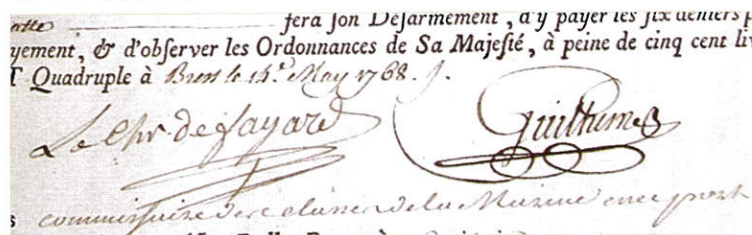 fera ſon Déſarmement, d'y payer les ſix deniers p
yement, & d'obſerver les Ordonnances de Sa Majeſté, à peine de cinq cent liv
T Quadruple à Brest le 14.e May 1768.
Le Chr. de fayard Guillhume
commissaire des classes de la Marine en ce port